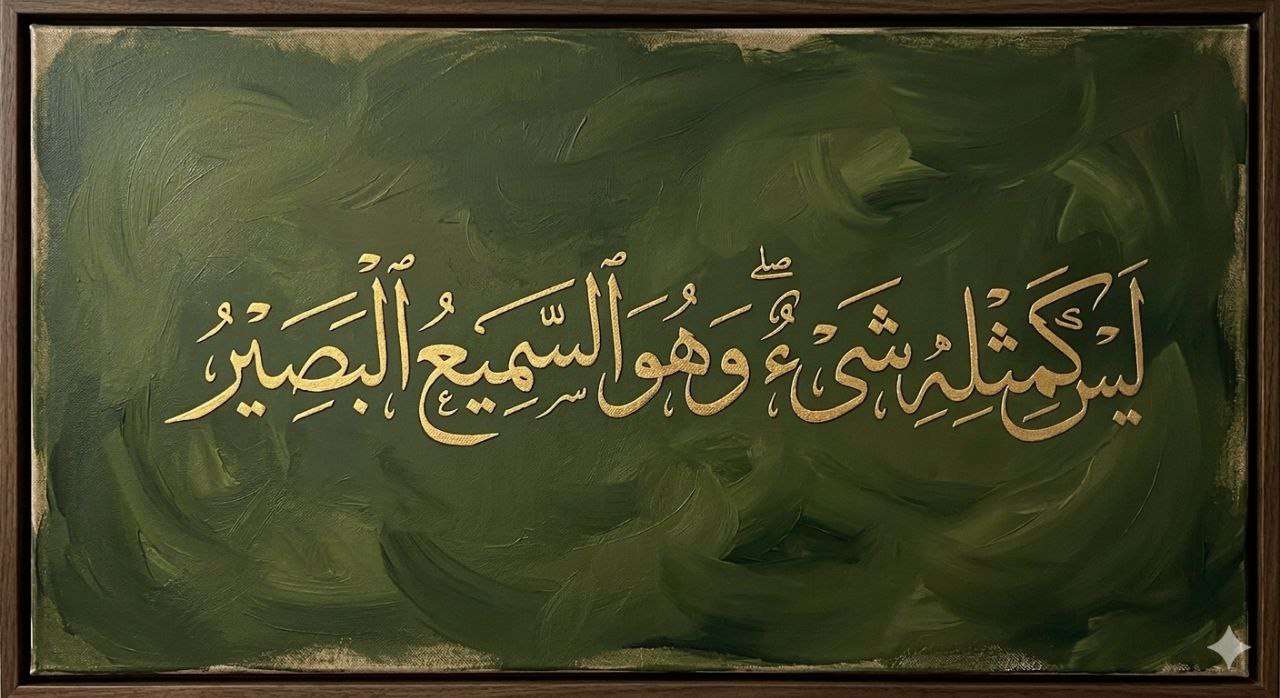 لَيْسَ كَمِثْلِهِ شَىْءٌ ۖ وَهُوَ ٱلسَّمِيعُ ٱلْبَصِيْرُ